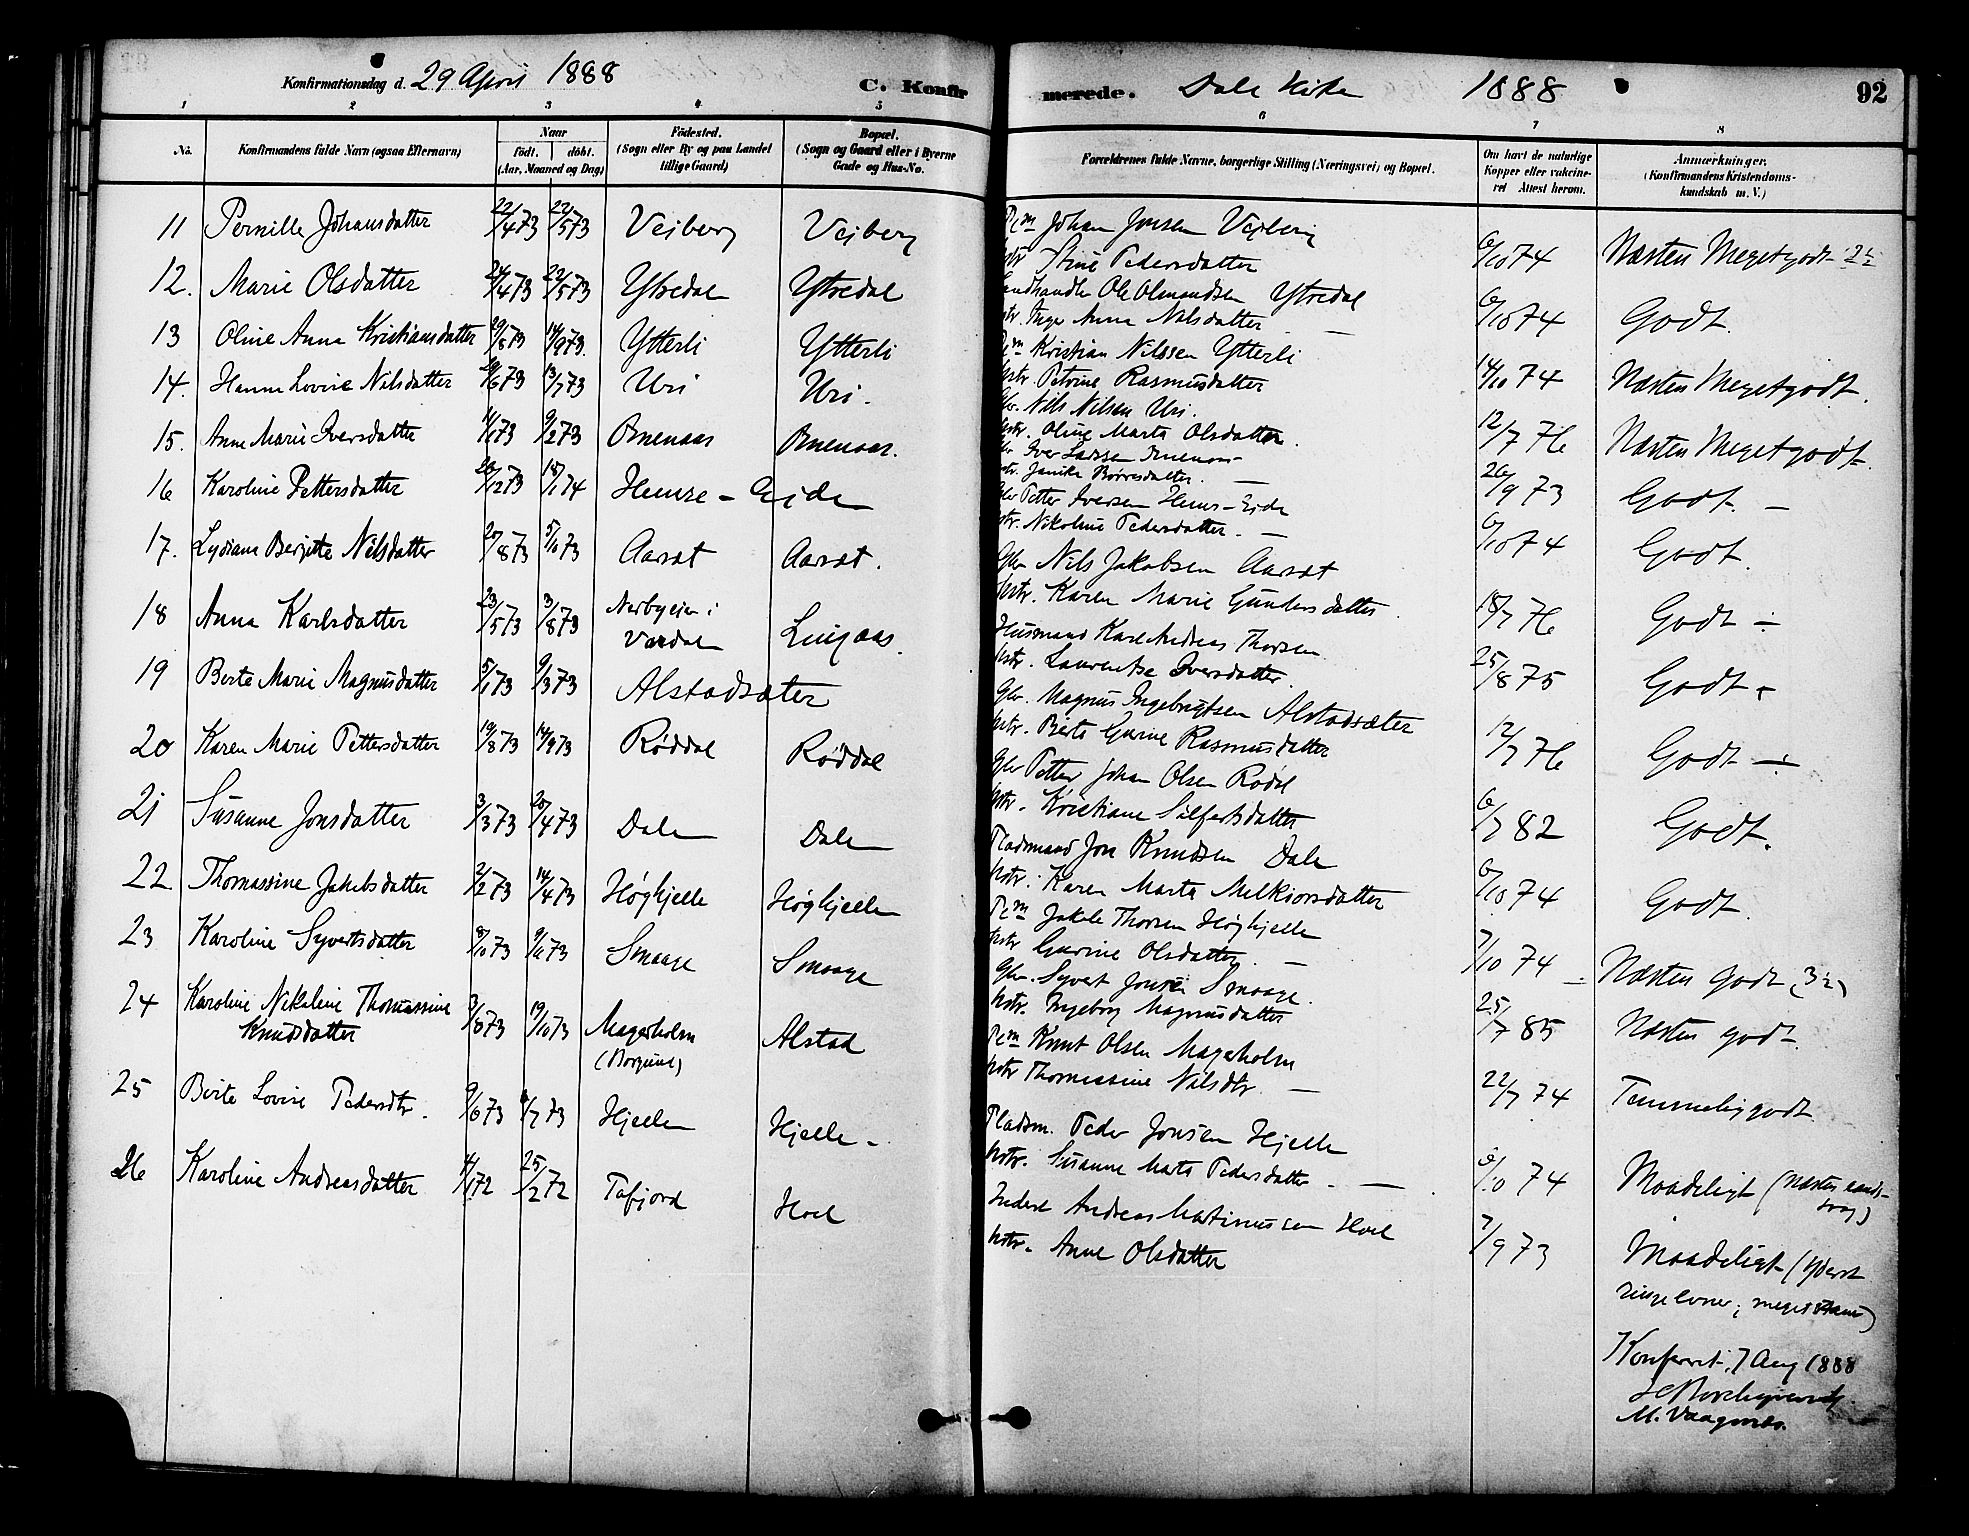 Konfirmationsdag d. 29 April 1888
C. Konfirmerede.
Dale Kirke 1888
92
1 2 3 4 5 6 7 8
No.
Konfirmandens fulde Navn (ogsaa Efternavn)
Naar
födt. döbt.
(Aar, Maaned og Dag)
Födested.
(Sogn eller By og paa Landet
tillige Gaard)
Bopæl.
(Sogn og Gaard eller i Byerne
Gade og Hus-No.
Forældrenes fulde Navne, borgerlige Stilling (Næringsvei) og Bopæl.
Om havt de naturlige
Kopper eller vakcine-
ret Attest herom.
Anmærkninger.
(Konfirmandens Kristendoms-
kundskab m. V.)
11 Pernille Johansdatter 22/4 73 22/5 73 Veiberg Veiberg
Johan Jonsen Veiberg
Stine Pedersdatter 6/10 74 Næsten Megetgodt
12. Marie Olsdatter 24/4 73 22/5 73 Ytredal Ytredal
Landhandler Ole Olmundsen Ytredal
Inge Anna Nilsdatter — 6/10 74 Godt.
13 Oline Anna Kristiansdatter 14/9 73. Ytterli Ytterli
Kristian Nilssen Ytterli
Petrine Rasmusdatter 14/10 74 Næsten Megetgodt.
14. Hanna Lovise Nilsdatter 13/7 73 Uri Uri.
Nils Nilsen Uri.
Hstr. Oline Marta Olsdatter. 12/7 76 Næsten Megetgodt.
15. Anne Marie Iversdatter 9/2 73 Omenaas Omenaas.
Iver Larssen Omenaas
Janike Børresdatter. — 26/9 73 Godt —
16 Karoline Pettersdatter 18/1 74 Hemre - Eide
Gbr Petter Iversen Hemre-Eide
Nikoline Pedersdatter. — 6/10 74 Godt.
17. Lydiane Bergitte Nilsdatter 20/8 73 5/10 73 Aarset Aarset.
Gbr Nils Jakobsen Aarset
Hstr. Karen Marie Gundersdatter. 18/7 76 Godt
18 Anna Karlsdatter 23/5 73 3/8 73 Nerbyeier i
Vardal Lingaas.
Husmand Karl Andreas Thorsen
Hstr. Laurentse Iversdatter. 25/8 75 Godt
19 Berte Marie Magnusdatter 5/1 73 9/3 73 Alstadsæter
Gbr. Magnus Ingebrigtsen Alstadsæter
Hstr. Berte Gurine Rasmusdatter 12/7 76 Godt
20 Karen Marie Pettersdatter 19/8 73 14/9 73 Røddal Røddal
Gbr Petter Johan Olsen Rødal
Hstr. Kristiane Silfertsdatter 6/7 82 Godt.
21 Susanne Jonsdatter 3/3 73 20/4 73 Dale Dale
Pladsmand Jon Knudsen Dale
Hstr. Karen Marta Melkiorsdatter 6/10 74 Godt.
22 Thomassine Jakobsdatter 2/2 73 14/4 73 Høghjelle Høghjelle
Jakob Thorsen Høghjelle
Hstr Gurine Olsdatter. — 7/10 74 Næsten Godt
23 Karoline Syvertsdatter 8/10 73 Smaage Smaage
Gbr. Syvert Jonsen Smaage.
Hstr. Ingeborg Magnusdatter 25/7 85 Næsten godt.
24 Karoline Nikoline Thomassine
Knudsdatter 3/8 73 19/10 73 Magerholm
(Borgund) Alstad
Knut Olsen Magerholm
Hstr Thomassine Nilsdtr. — 22/7 74 Temmelig godt
25 Berte Lovise Pedersdtr. 9/6 73 6/7 73 Hjelle Hjelle -
Pladsm. Peder Jonsen Hjelle
Hstr. Susanne Marte Pedersdatter. — 6/10 74 Maadeligt (Næsten aands-
svag)
26 Karoline Andreasdatter 25/2 72 Tafjord Hoel
Inderst Andreas Martinussen Hoel
Hstr. Anne Olsdatter 7/9 73 Maadeligt (yderst
ringe evner; meget)
Konfereret. 7 Aug 1888
M. Vaagenæs.